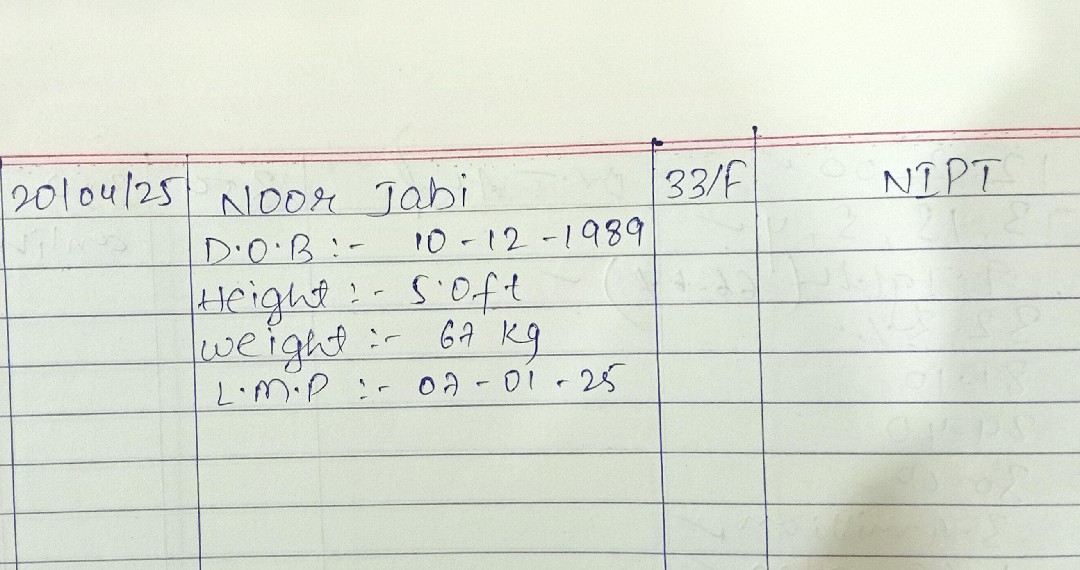 20/04/25 Noor Jabi 33/F NIPT
D.O.B :- 10-12-1989
Height :- 5.0ft
Weight :- 67 kg
L.M.P :- 07-01-25